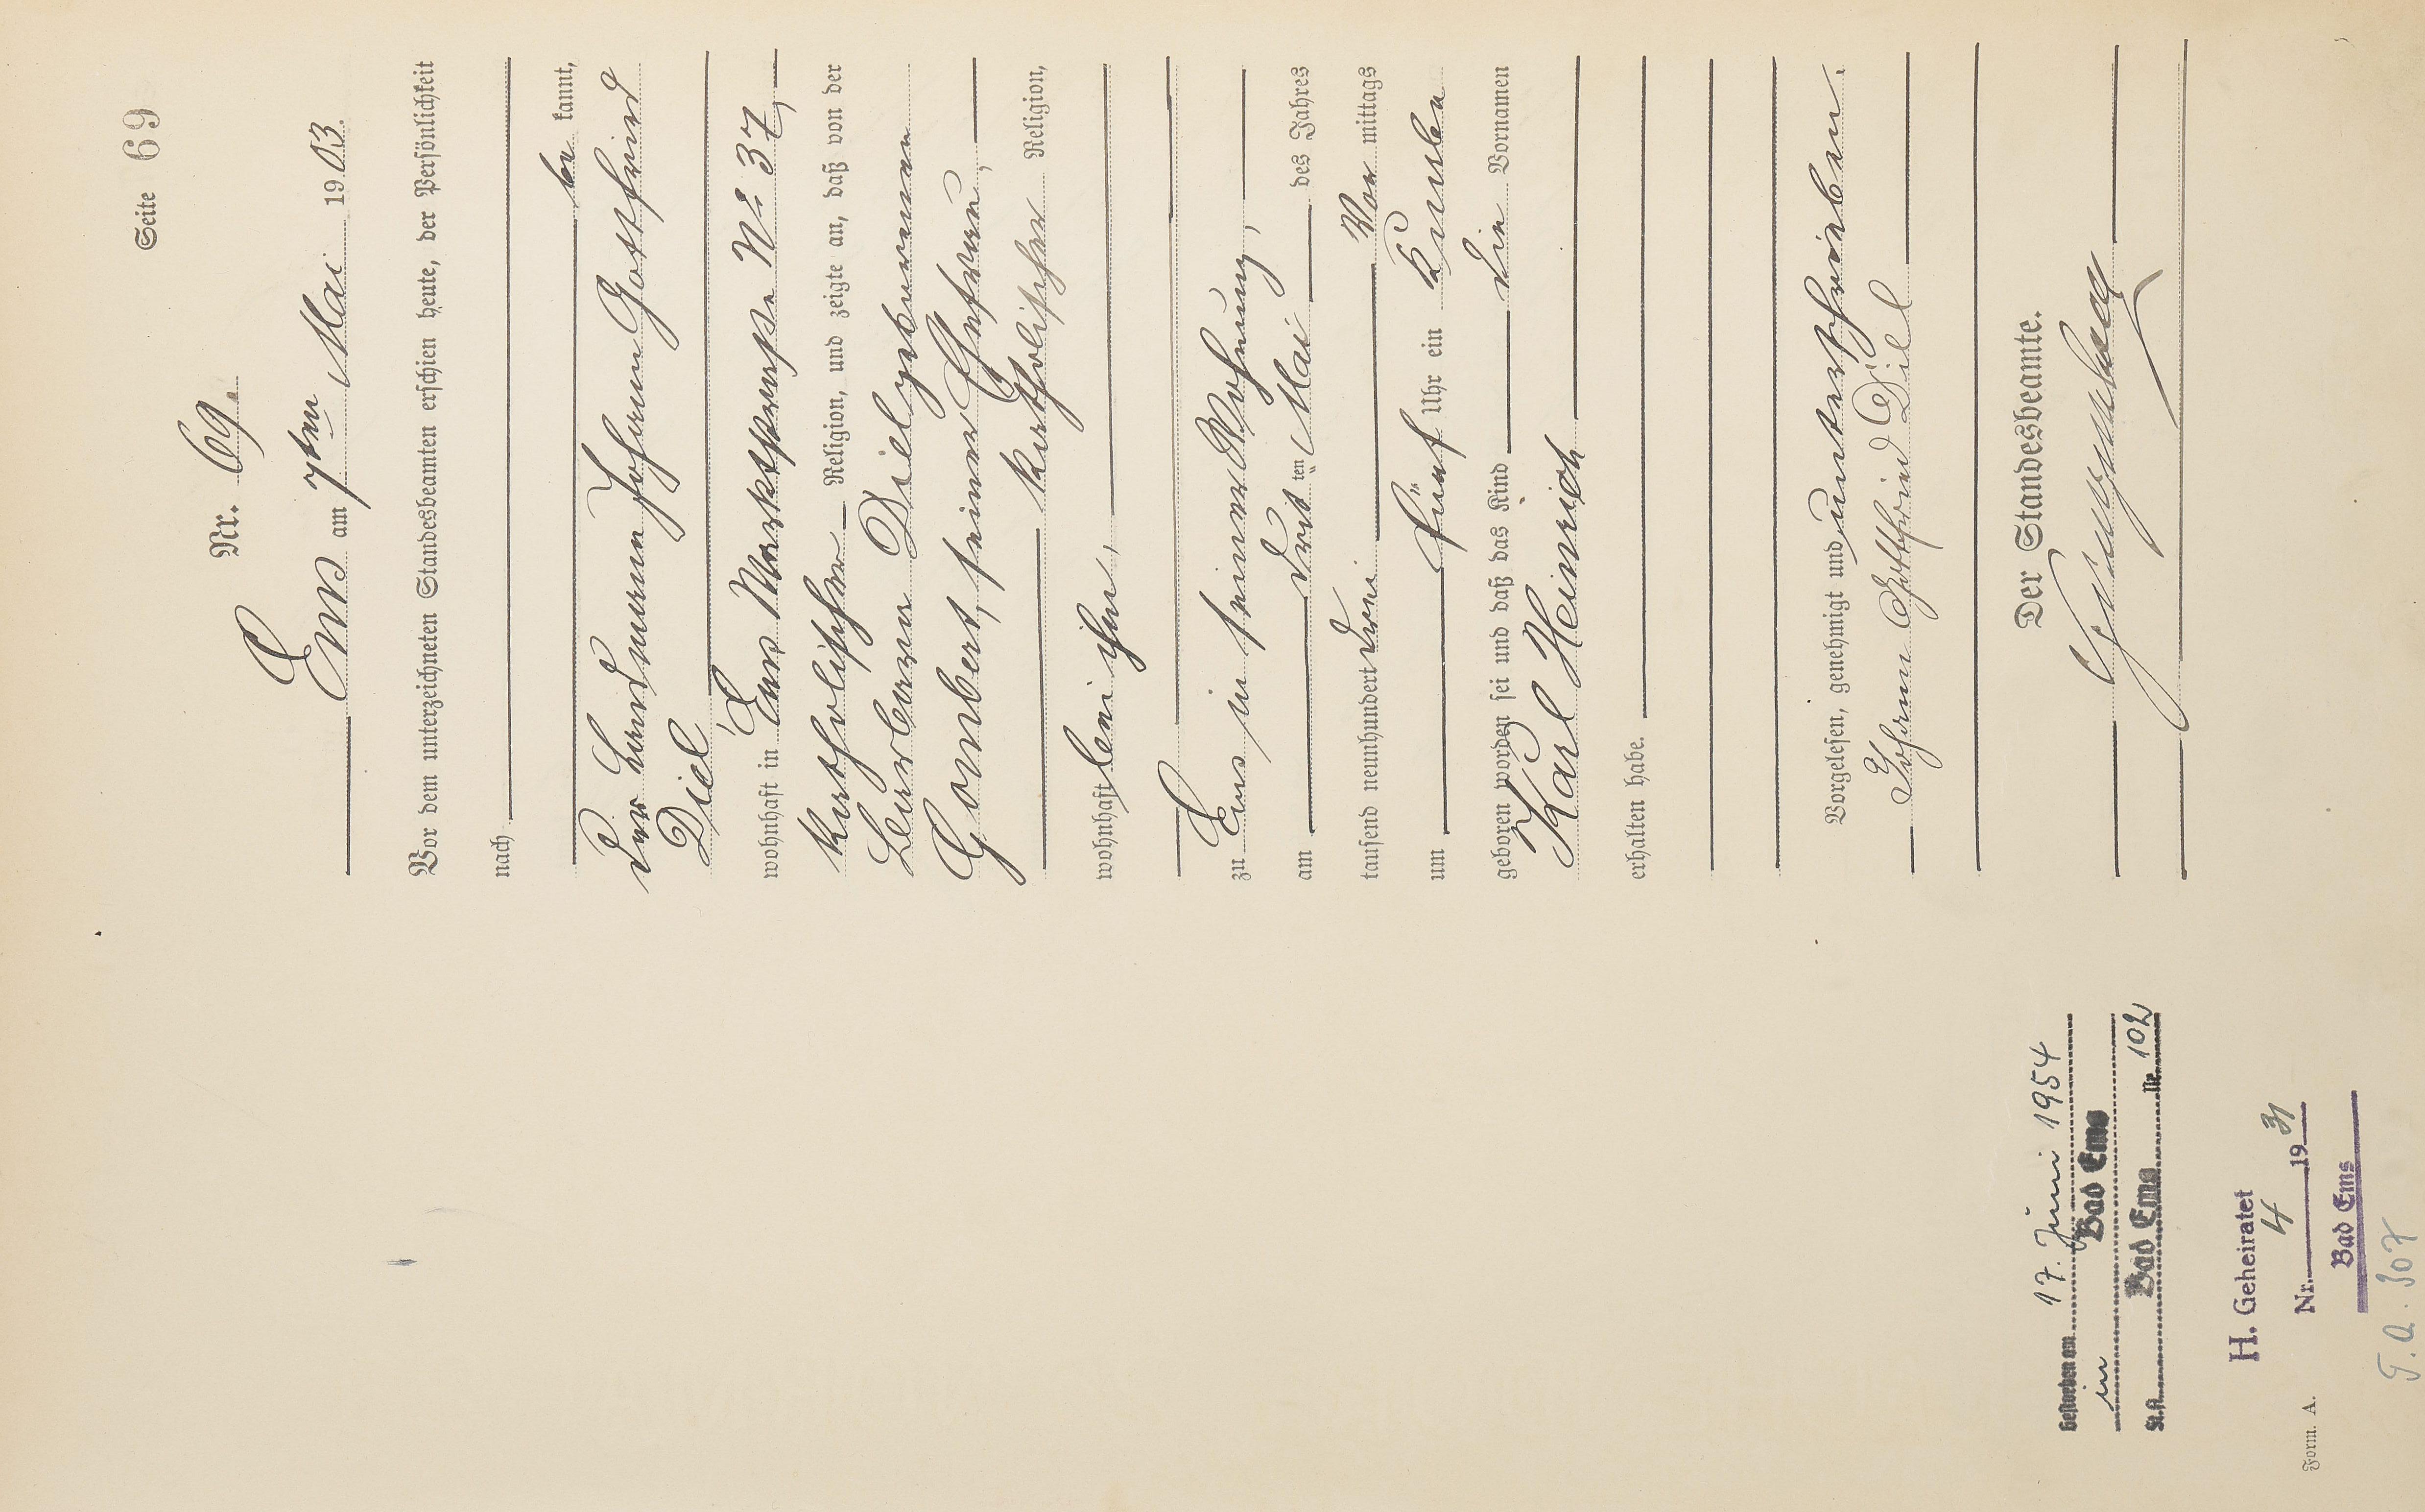 Seite 69
Nr. 69.
Ems am 7ten Mai 1903.
Vor dem unterzeichneten Standesbeamten erschien heute, der Persönlichkeit
nach
be kannt,
der Landmann Johann Gottfried
Diel,
wohnhaft in Ems Marktstraße No. 37,
katholischer Religion, und zeigte an, daß von der
Barbara Diel gebornen
Gombert, seiner Ehefrau,
katholischer Religion,
wohnhaft bei ihm,
zu Ems in seiner Wohnung,
am dritten Mai des Jahres
tausend neunhundert drei Vor mittags
um fünf Uhr ein Knabe
geboren worden sei und daß das Kind die Vornamen
Karl Heinrich
erhalten habe.
Vorgelesen, genehmigt und unterschrieben.
Johann Gottfried Diel
Der Standesbeamte.
Gestorben am 17. Juni 1954
in Bad Ems
St.A. Bad Ems Nr. 102
H. Geheiratet
Nr. 4 1931
Bad Ems
Form. A.